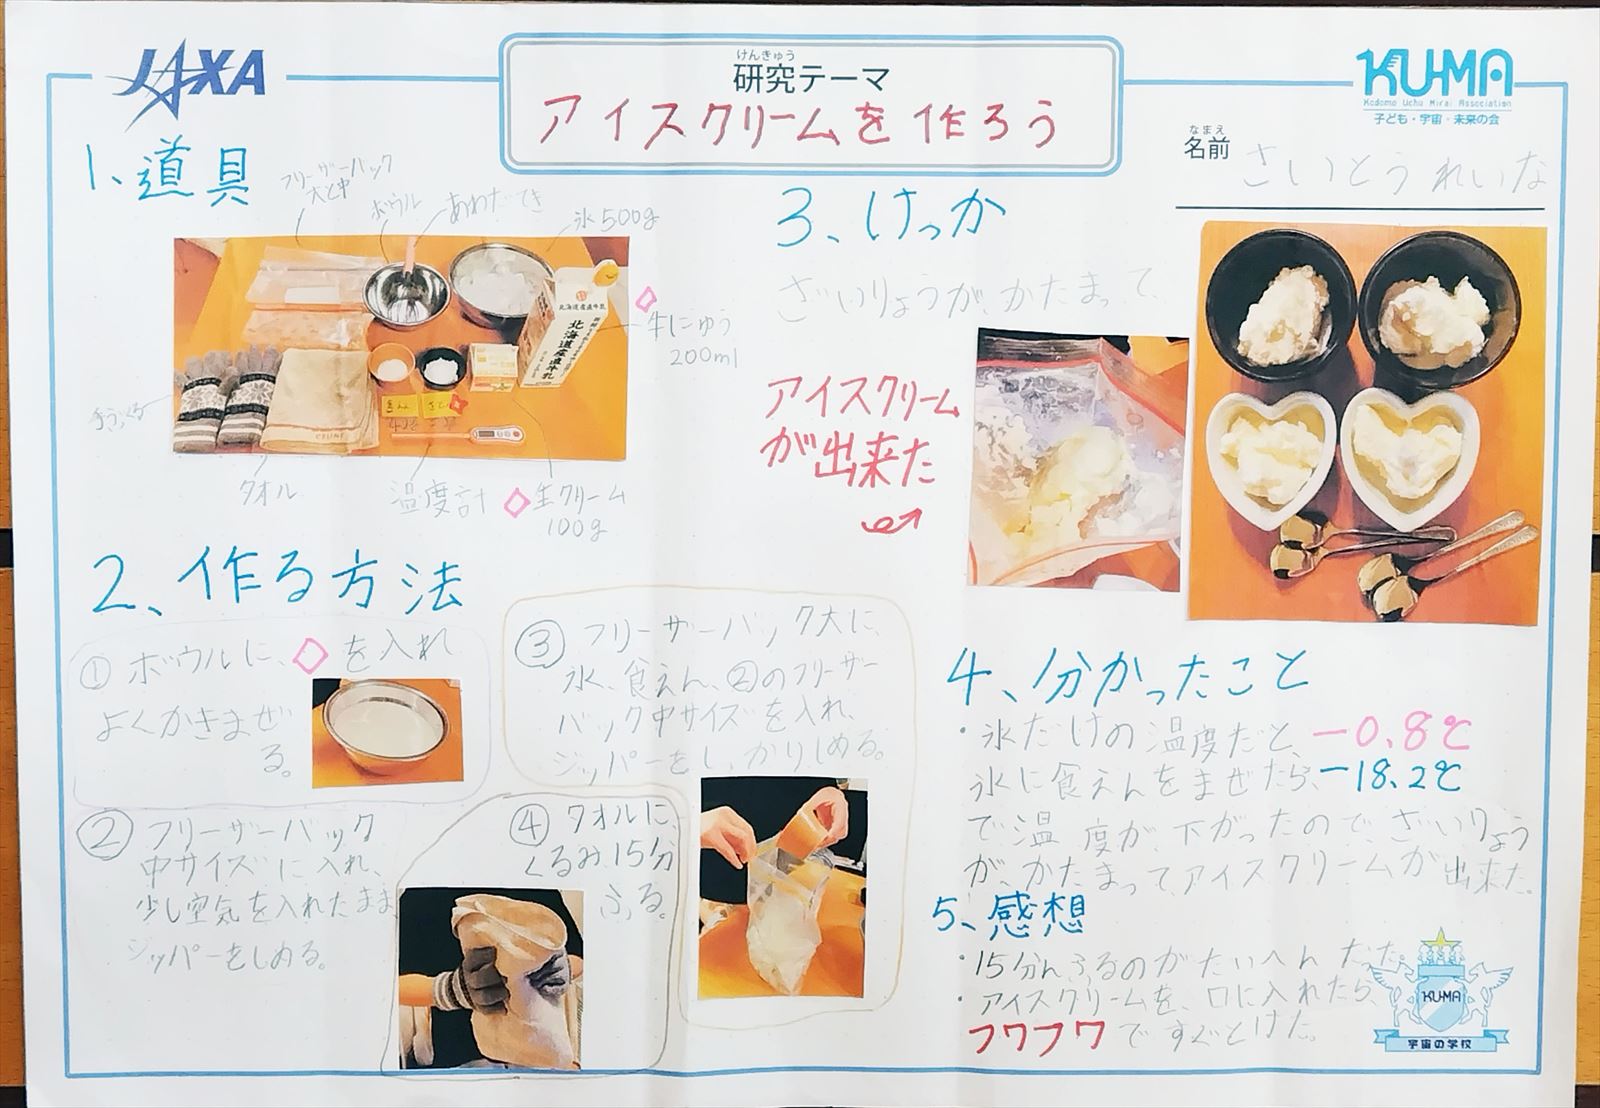 JAXA
けんきゅう
研究テーマ
アイスクリームを作ろう
KU-MA
Kodomo Uchu Mirai Association
子ども・宇宙・未来の会
なまえ
名前 さいとうれいな
1、道具
フリーザーバック
大と中
ボウル
あわだてき
氷500g
牛にゅう
200ml
北海道産直牛乳
北海道産直牛乳
手ぶくろ
タオル
温度計
生クリーム
100g
2、作る方法
① ボウルに、◇を入れ
よくかきまぜ
る。
② フリーザーバック
中サイズに入れ、
少し空気を入れたまま
ジッパーをしめる。
③ フリーザーバック大に、
氷、食えん、②のフリーザー
バック中サイズを入れ、
ジッパーをしっかりしめる。
④ タオルに、
くるみ、15分
ふる。
3、けっか
ざいりょうが、かたまって、
アイスクリーム
が出来た
4、分かったこと
・氷だけの温度だと、−0.8℃
氷に食えんをまぜたら、−18.2℃
で温度が、下がったので、ざいりょう
が、かたまって、アイスクリームが出来た。
5、感想
・15分んふるのがたいへんだった。
・アイスクリームを、口に入れたら、
フワフワですぐとけた。
KU-MA
宇宙の学校